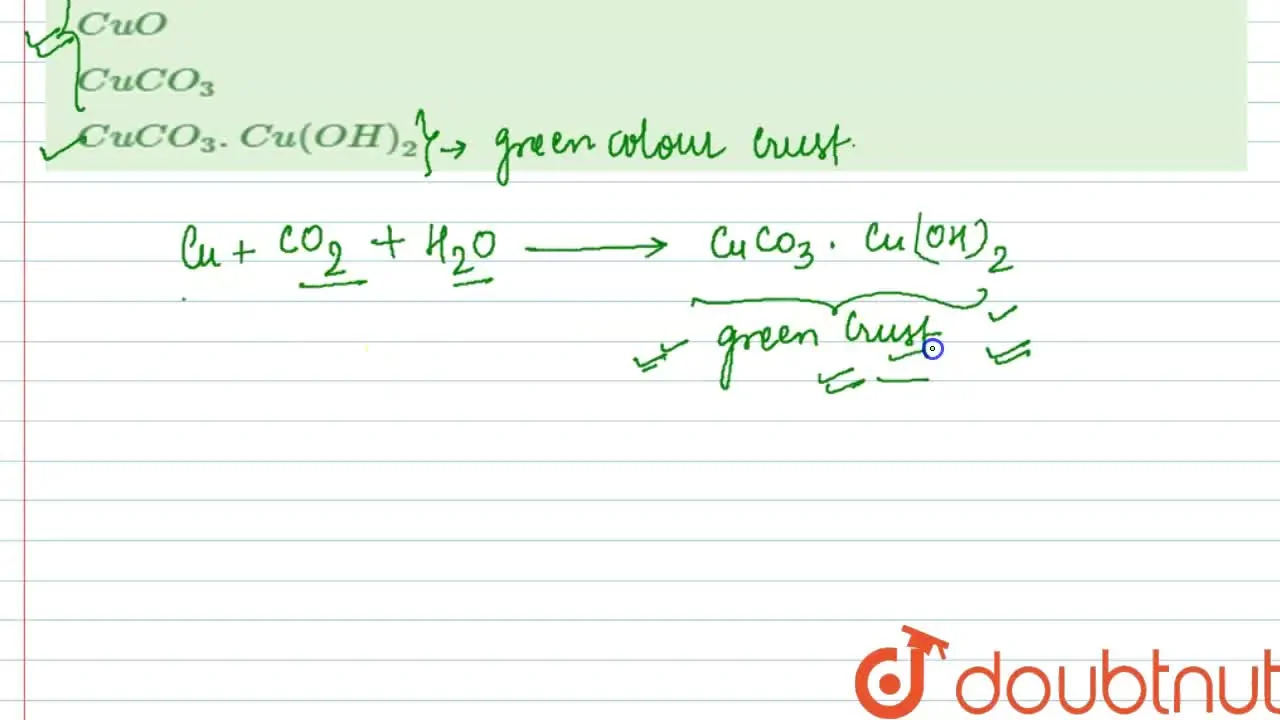 CuO
CuCO₃
CuCO₃. Cu(OH)₂} → green colour crust.
Cu + CO₂ + H₂O ⟶ CuCO₃ . Cu(OH)₂
green crust
doubtnut